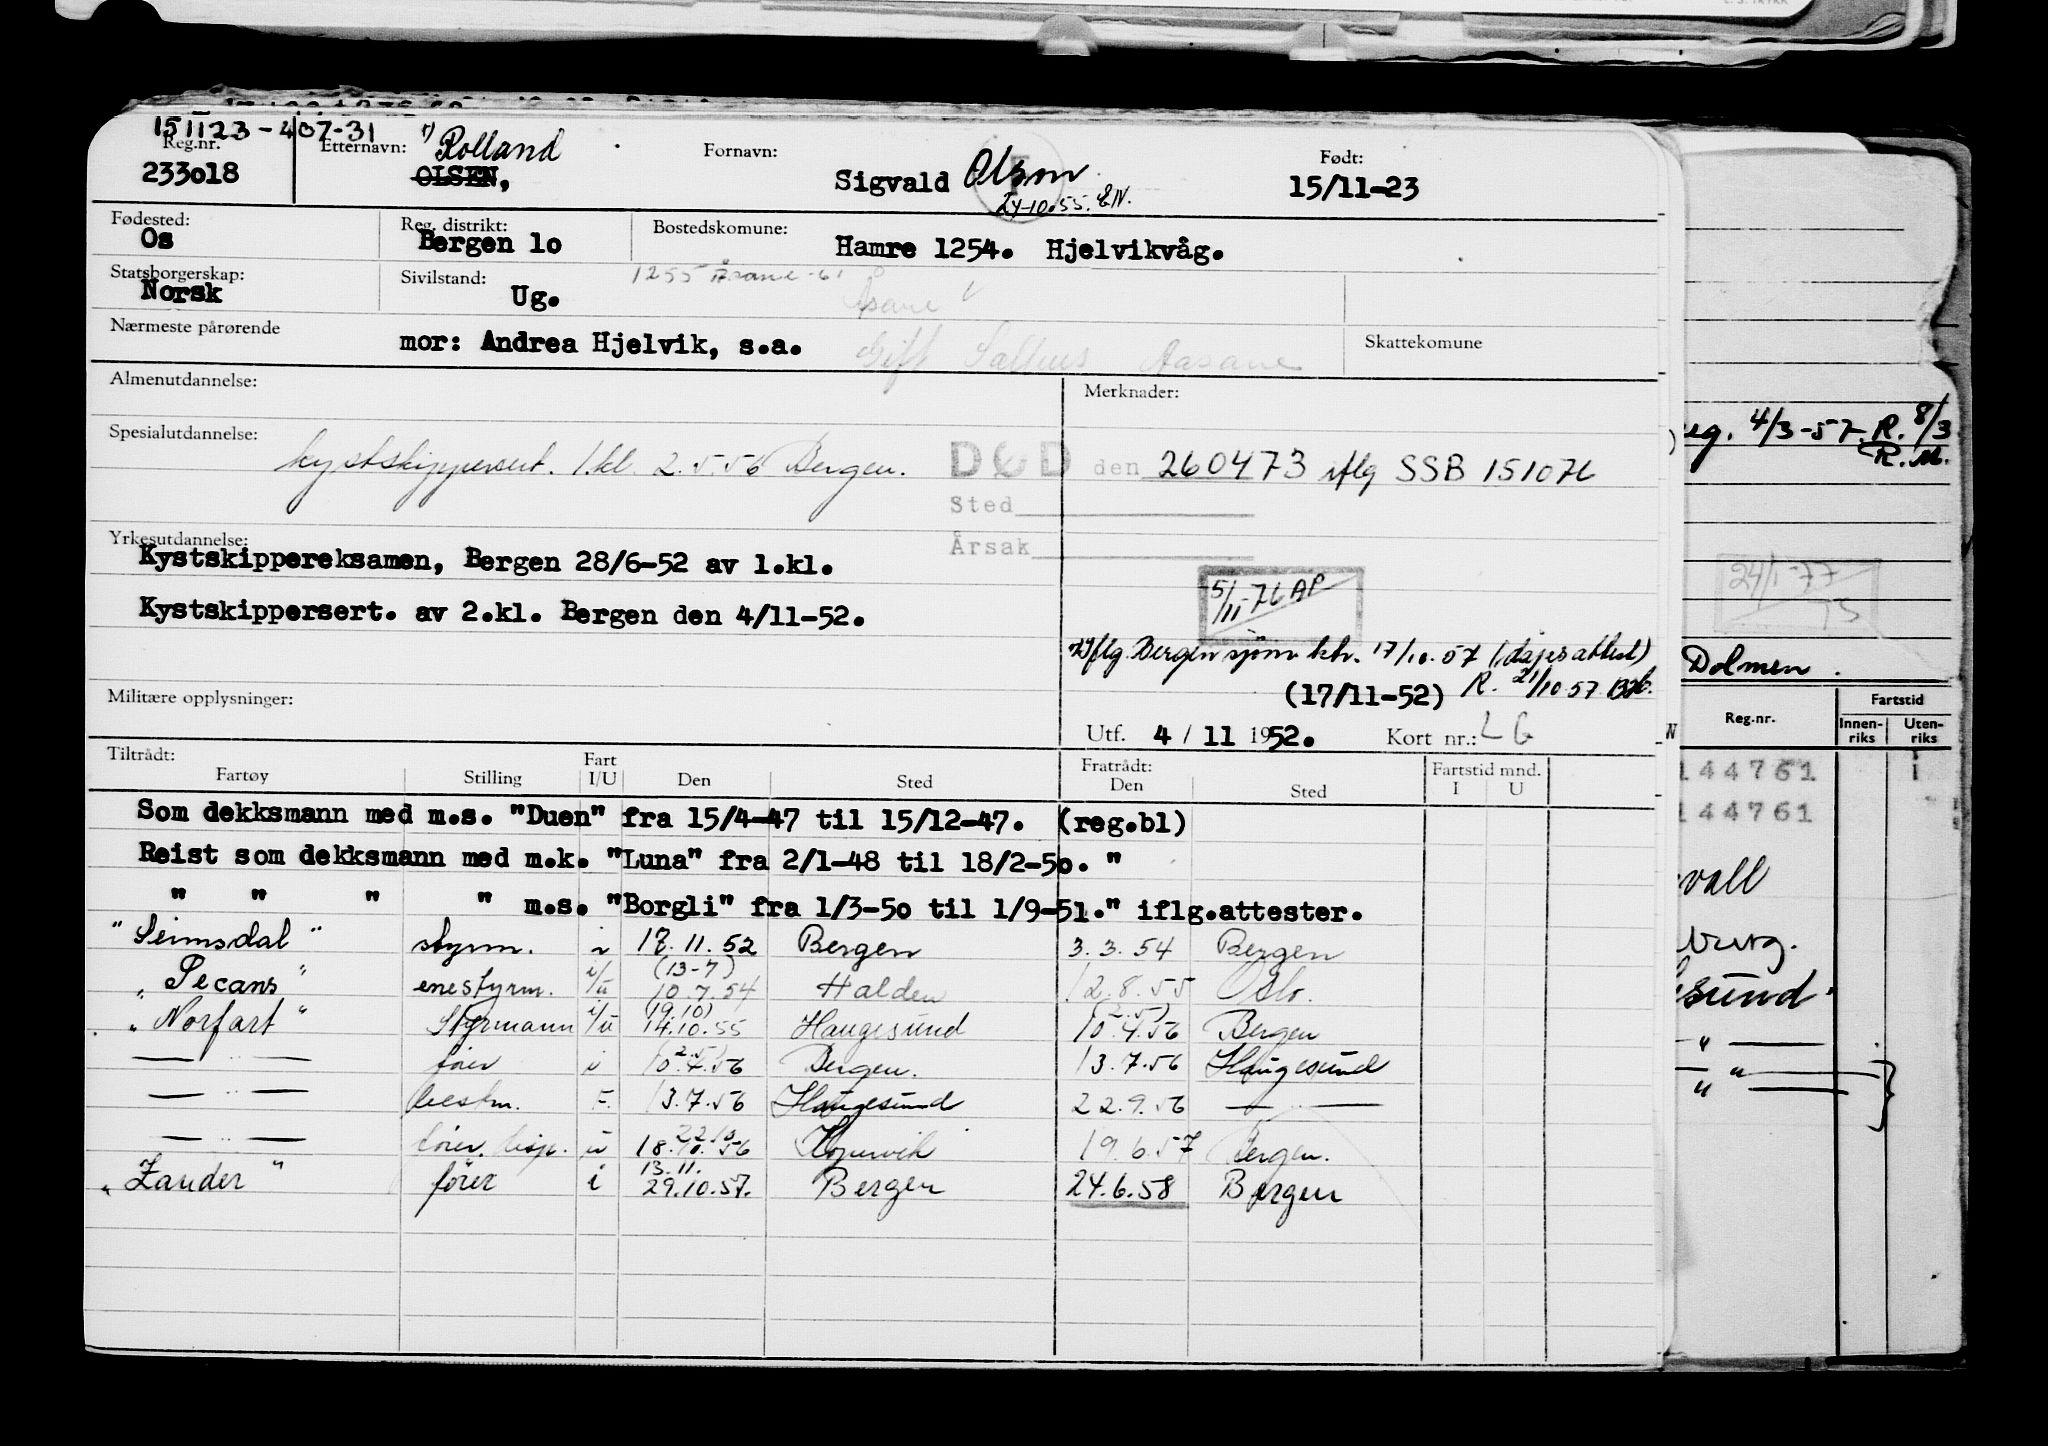 151123-40731
Reg.nr. Etternavn: 1) Rolland Fornavn: Født:
233018 OLSEN, Sigvald Olsen 15/11-23
24-10.55. EN.
Fødested: Reg. distrikt: Bostedskomune:
Os Bergen 10 Hamre 1254. Hjelvikvåg.
Statsborgerskap: Sivilstand: 1255 Åsane
Norsk Ug. Åsane
Nærmeste pårørende mor: Andrea Hjelvik, s.a. Gift Salhus Aasane Skattekomune
Almenutdannelse: Merknader:
Spesialutdannelse: kystskippersert. 1.kl. 2.5.56 Bergen. DØD den 260473 iflg SSB 151076
Sted
Yrkesutdannelse: Årsak
Kystskippereksamen, Bergen 28/6-52 av 1.kl.
5/11-76 AP
Kystskippersert. av 2.kl. Bergen den 4/11-52.
Iflg. Bergen sjøm. ktr. 17/10.57 (dåpsattest)
(17/11-52) R. 21/10 57.
Militære opplysninger:
Utf. 4 / 11 1952. Kort nr.: LG
Tiltrådt: Fart Fratrådt: Fartstid mnd.
Fartøy Stilling I/U Den Sted Den Sted I U
Som dekksmann med m.s. "Duen" fra 15/4-47 til 15/12-47. (reg.bl)
Reist som dekksmann med m.k. "Luna" fra 2/1-48 til 18/2-50. "
" " " " m.s. "Borgli" fra 1/3-50 til 1/9-51." iflg.attester.
"Seimsdal" styrm. i 17.11.52 Bergen 3.3.54 Bergen
(13-7)
"Pecans" enestyrm. i/u 10.7.54 Halden 12.8.55 Oslo.
(19.10) (2.5)
"Norfart" Styrmann i/u 14.10.55 Haugesund 10.4.56 Bergen
(2.5)
— " — fører i 10.4.56 Bergen. 13.7.56 Haugesund
— " — bestm. F. 13.7.56 Haugesund 22.9.56 — " —
22.10
— " — fører, disp. u 18.10.56 Kopervik 19.6.57 Bergen.
13.11.
"Zander" fører i 29.10.57. Bergen 24.6.58 Bergen
eg. 4/3-57 R. 8/3
R. M.
24/1-77
Dolmen.
Fartstid
Reg.nr. Innenriks Utenriks
144761 1
144761
vall
burg.
sund